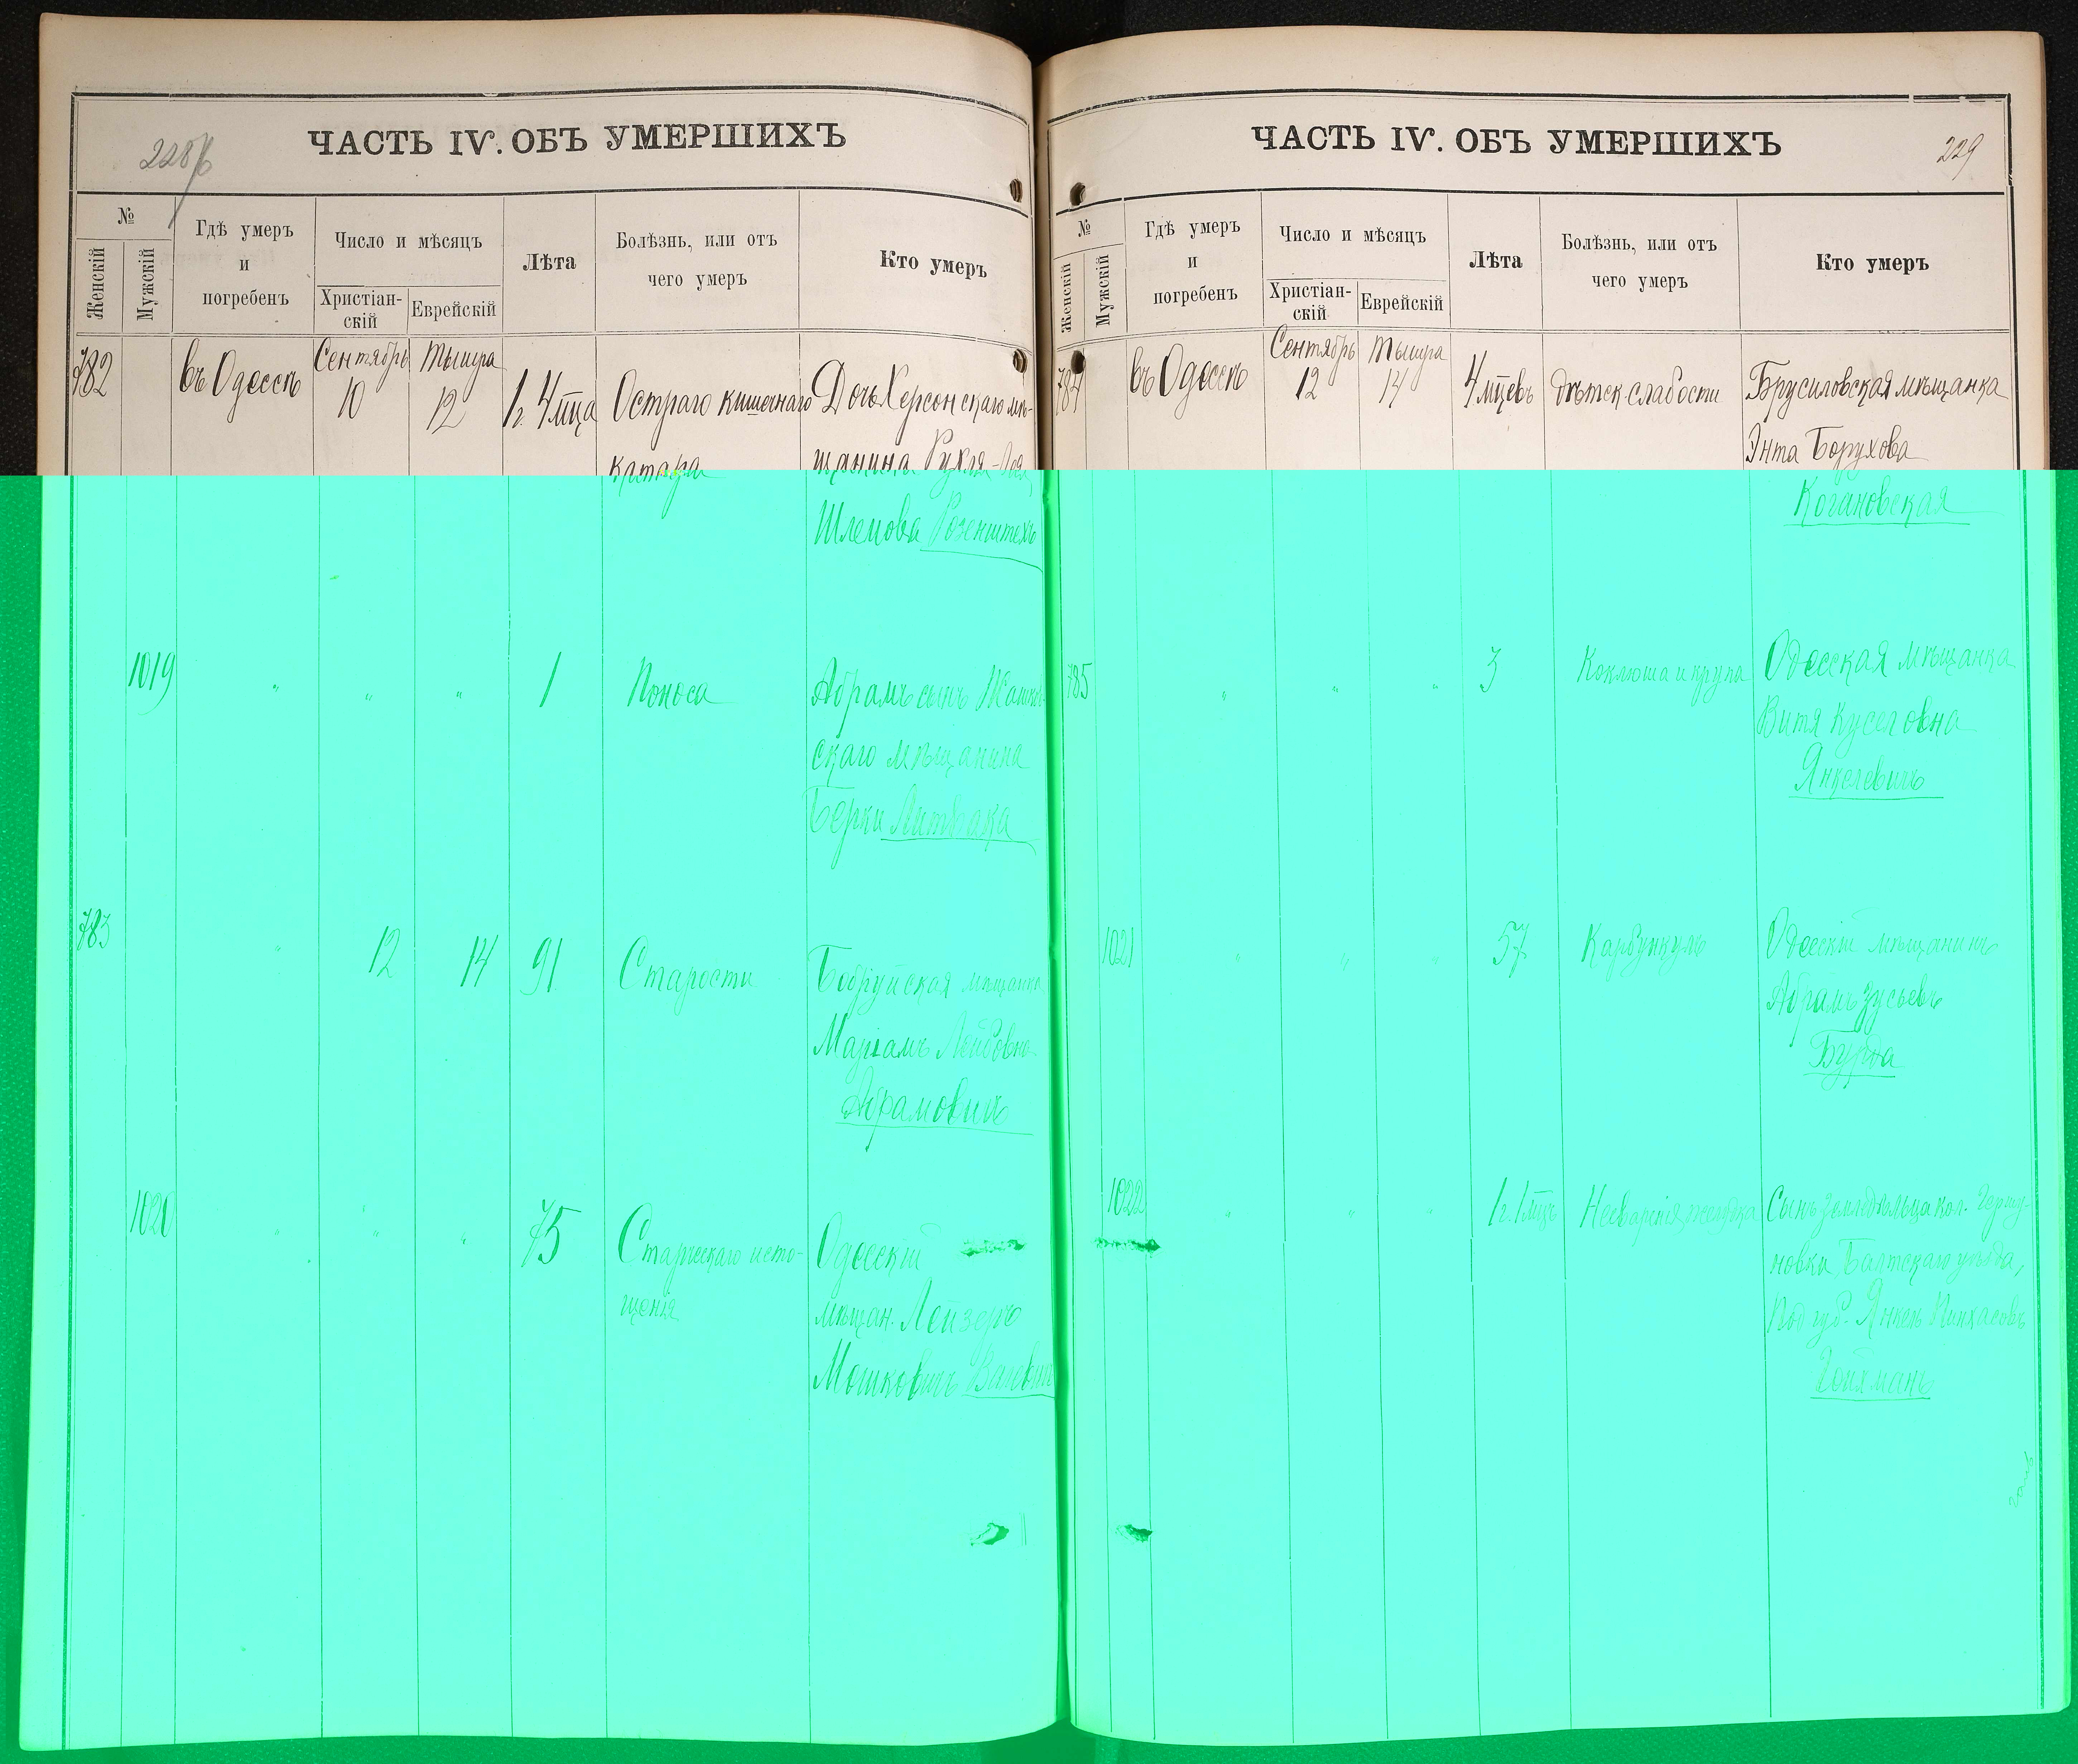 ЧАСТЬ IV. ОБЪ УМЕРШИХЪ
№
Женскій
Мужскій
Гдѣ умеръ
и
погребенъ
Число и мѣсяцъ
Христіан-
скій
Еврейскій
Лѣта
Болѣзнь, или отъ
чего умеръ
Кто умеръ
782
въ Одессѣ
Сентябрь
10
Тышра
12
1 г. 4 мца
Остраго кишечнаго
катара
Дочь Херсонскаго мѣ-
щанина Рухля-
Шлемова Розенштехъ
1019
" " "
1
Поноса
Абрамъ сынъ
скаго мѣщанина
Берки Литвака
783
"
12
14
91
Старости
Бобруйская мѣщанка
Маріамъ Лейбовна
Абрамовичъ
1020
" " "
75
Старческаго исто-
щенія
Одесскій
мѣщан. Лейзеръ
Мошковичъ
ЧАСТЬ IV. ОБЪ УМЕРШИХЪ
229
№
Женскій
Мужскій
Гдѣ умеръ
и
погребенъ
Число и мѣсяцъ
Христіан-
скій
Еврейскій
Лѣта
Болѣзнь, или отъ
чего умеръ
Кто умеръ
784
въ Одессѣ
Сентябрь
12
Тышра
14
4 мцевъ
Дѣтск. слабости
Брусиловская мѣщанка
Энта Борухова
Когановская
785
" " "
3
Коклюша и крупа
Одесская мѣщанка
Витя Куселовна
Янкелевичъ
1021
" " "
57
Карбункулъ
Одесскій мѣщанинъ
Абрамъ Зусьевъ
Бурда
1022
" " "
1 г. 1 мцъ
Несваренія желудка
Сынъ земледѣльца кол.
новки Балтскаго уѣзда,
Под. губ. Янкель Пинхасовъ
Гойхманъ